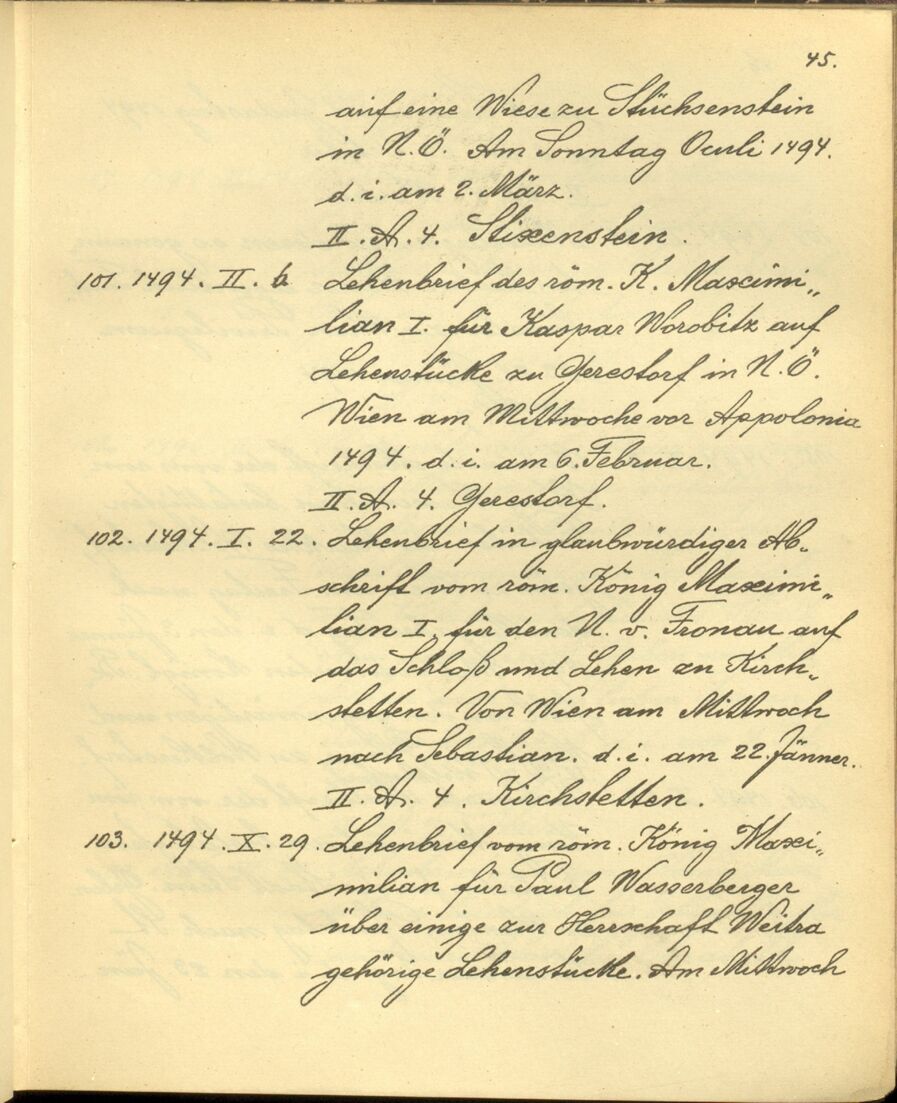 45.
auf eine Wiese zu Stüchsenstein
in N.Ö. Am Sonntag Oculi 1494.
d. i. am 2. März.
II. A. 4. Stixenstein.
101. 1494. II. 6. Lehenbrief des röm. K. Maximi„
lian I. für Kaspar Worobitz auf
Lehenstücke zu Gerestorf in N.Ö.
Wien am Mittwoche vor Appolonia
1494. d. i. am 6. Februar.
II. A. 4. Gerestorf.
102. 1494. I. 22. Lehenbrief in glaubwürdiger Ab„
schrift vom röm. König Maximi„
lian I. für den N. v. Fronau auf
das Schloß und Lehen zu Kirch„
stetten. Von Wien am Mittwoch
nach Sebastian. d. i. am 22. Jänner.
II. A. 4. Kirchstetten.
103. 1494. X. 29. Lehenbrief vom röm. König Maxi„
milian für Paul Wasserberger
über einige zur Herrschaft Weitra
gehörige Lehenstücke. Am Mittwoch